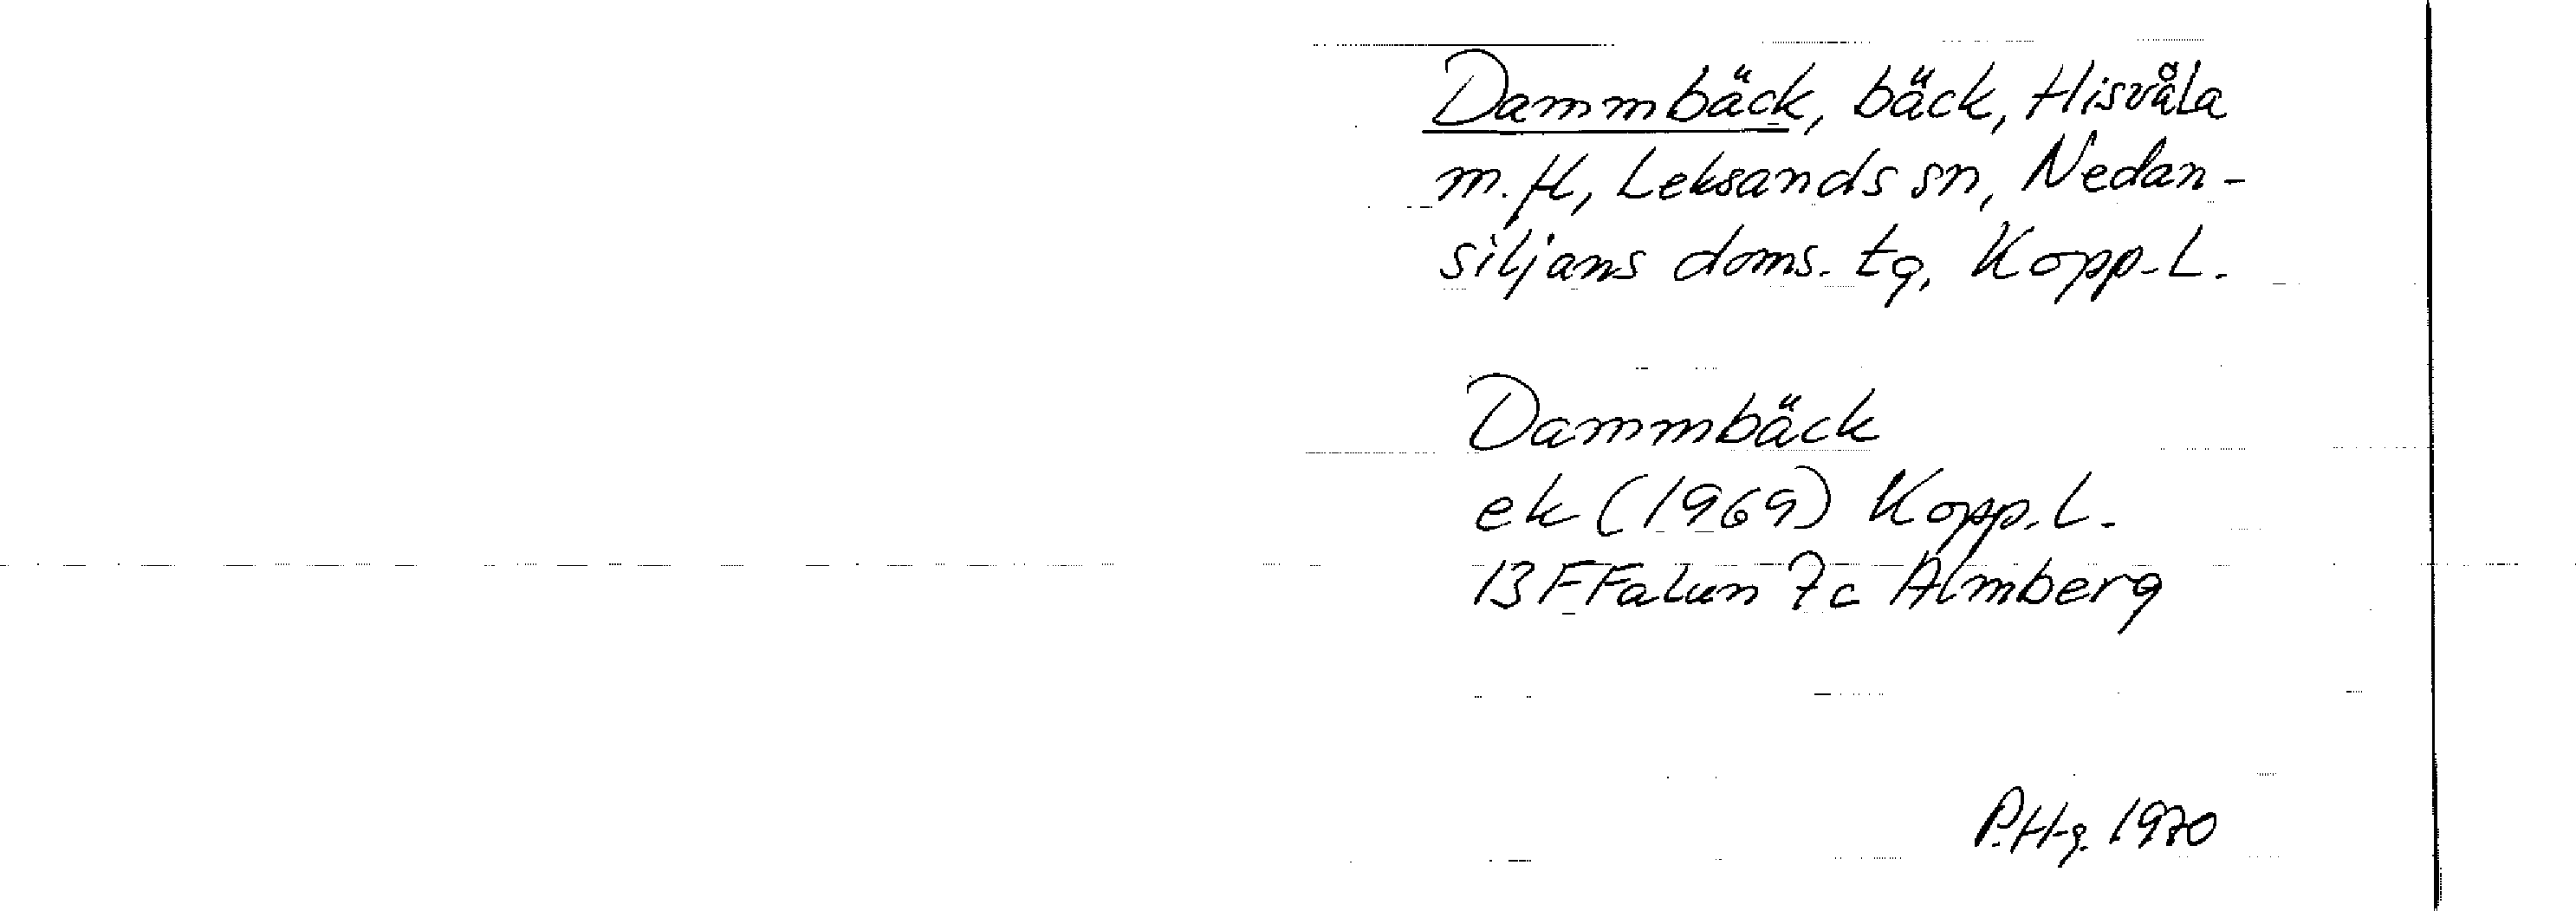 Dammbäck, bäck, Hisvåla
m.fl, Leksands sn, Nedan-
siljans doms. tg, Kopp-L.
Dammbäck
ek (1969) Kopp.L.
13 F Falun 7c Almberg
P.Hg. 1970